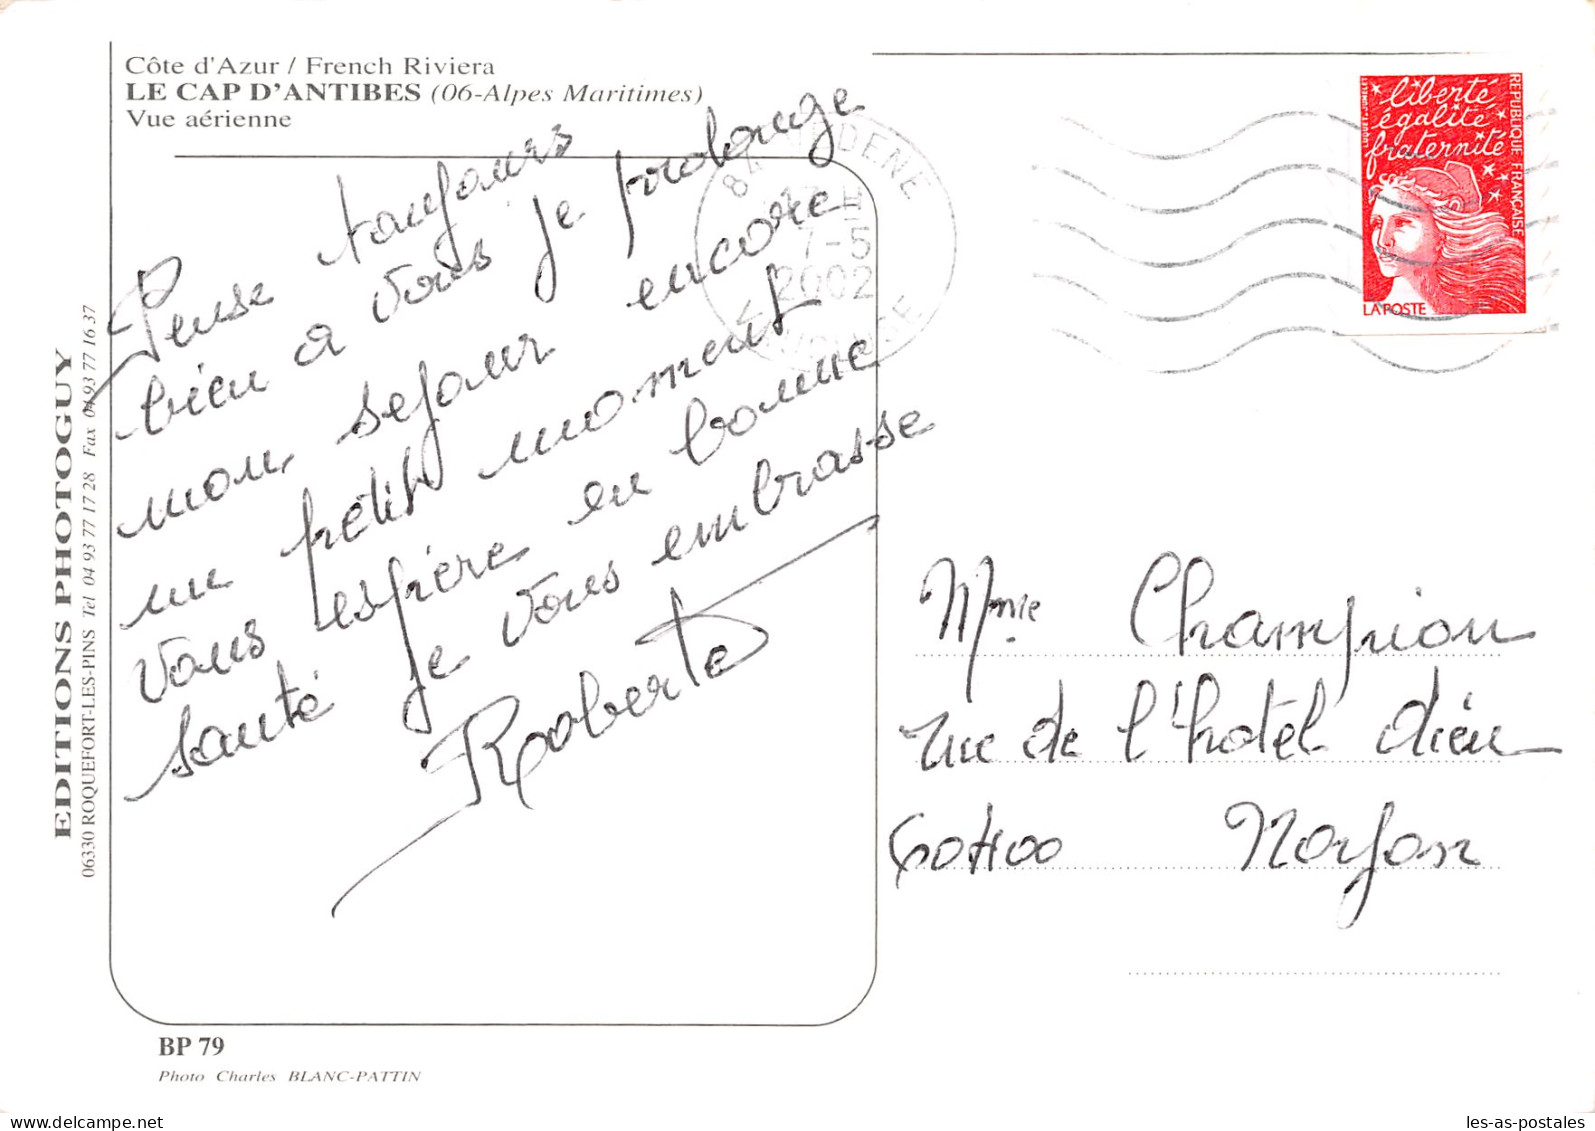 Côte d'Azur / French Riviera
LE CAP D'ANTIBES (06-Alpes Maritimes)
Vue aérienne
Pense toujours
bien a vous je prolonge
mon sejour encore
un petit moment
vous espère en bonne
santé je vous embrasse
Roberte
EDITIONS PHOTOGUY
06330 ROQUEFORT-LES-PINS Tel 04 93 77 17 28 Fax 04 93 77 16 37
BP 79
Photo Charles BLANC-PATTIN
84 VEDENE
17 H
7-5
2002
VAUCLUSE
liberté
égalité
fraternité
REPUBLIQUE FRANÇAISE
LUQUET-JUMELET
LA POSTE
Mme Champion
rue de l'hotel dieu
60400 Noyon
les-as-postales